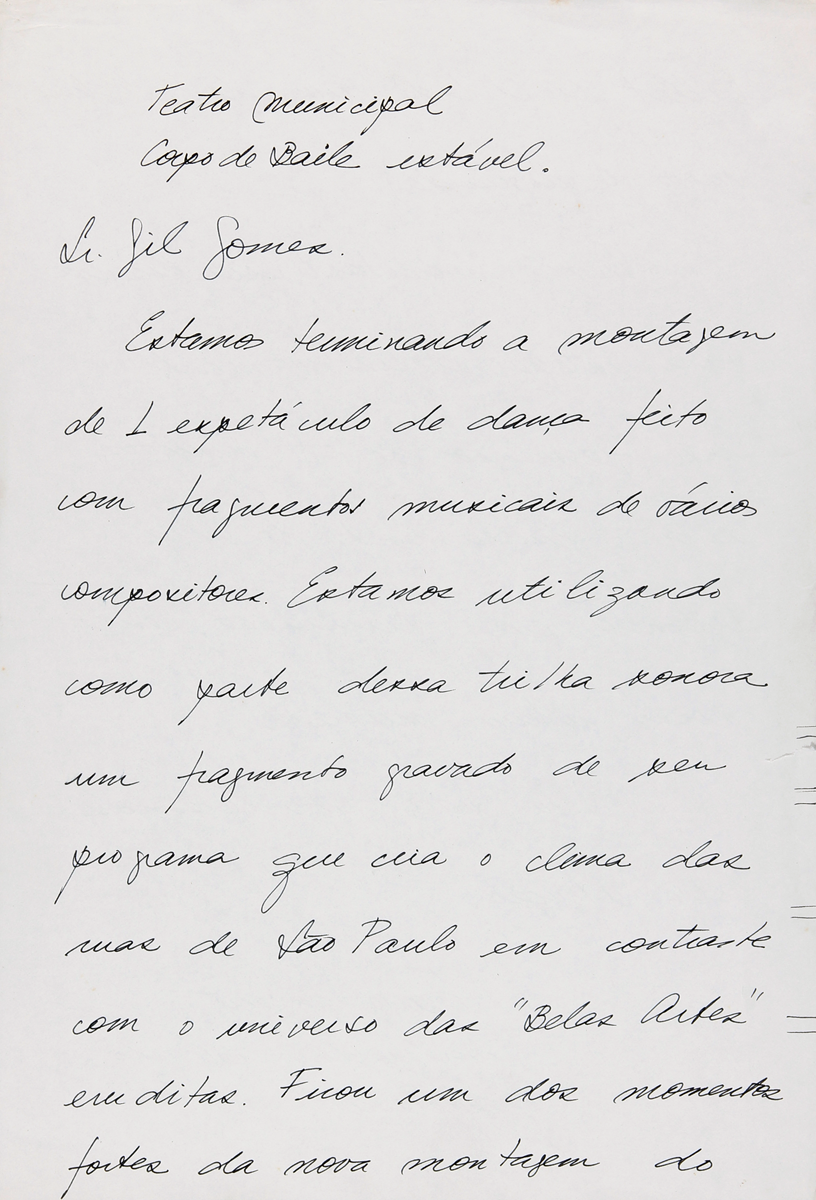 Teatro Municipal
Corpo de Baile estável.
Sr. Gil Gomes.
Estamos terminando a montagem
de 1 espetáculo de dança feito
com fragmentos musicais de vários
compositores. Estamos utilizando
como parte dessa trilha sonora
um fragmento gravado de seu
programa que cria o clima das
ruas de São Paulo em contraste
com o universo das "Belas Artes"
eruditas. Ficou um dos momentos
fortes da nova montagem do